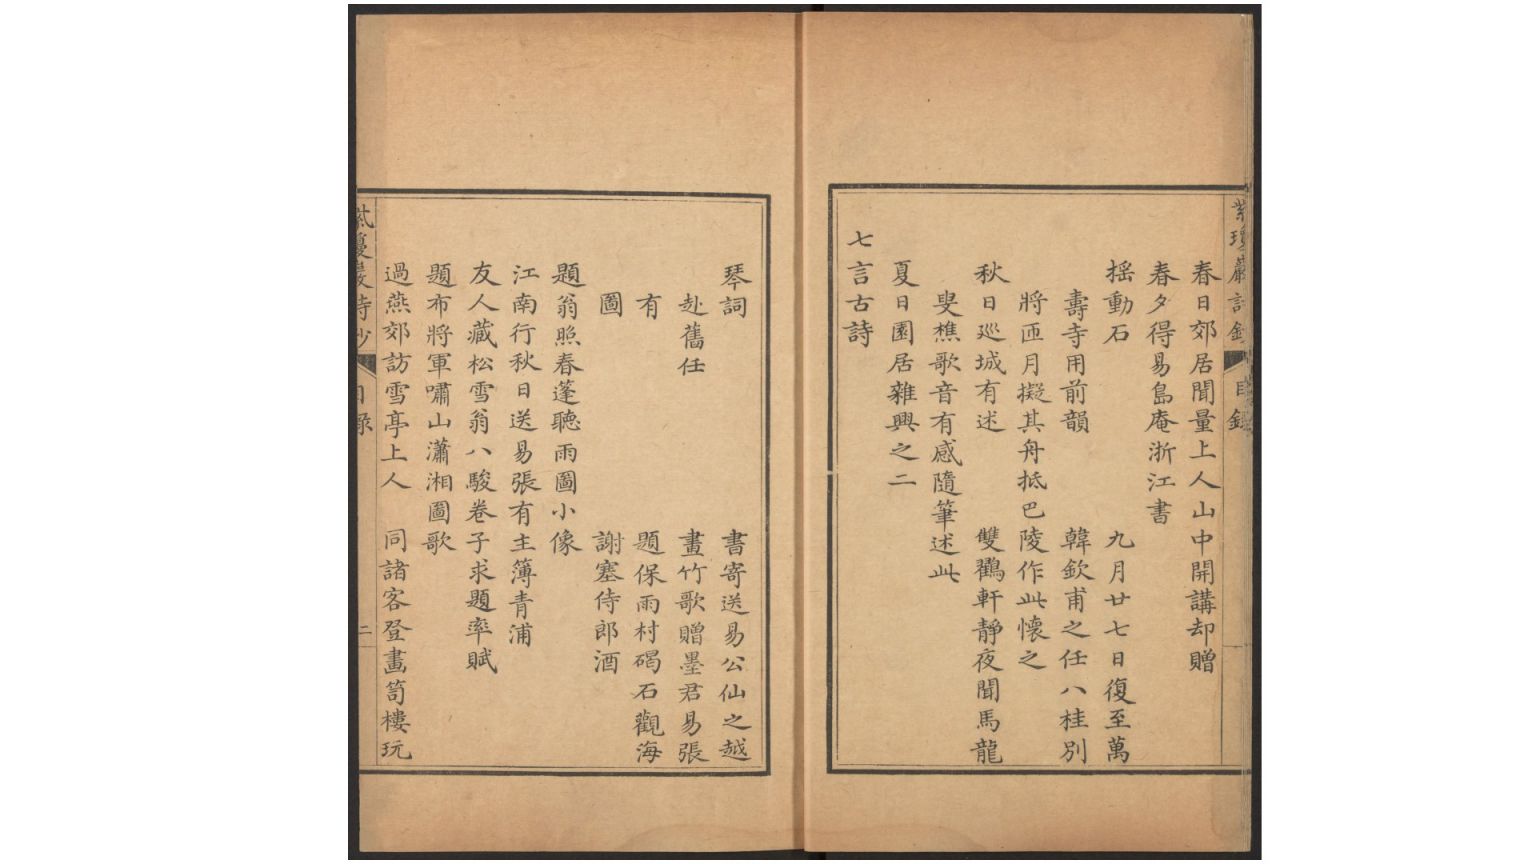 春日郊居聞量上人山中開講却贈
春夕得易島庵浙江書
搖動石　九月廿七日復至萬
壽寺用前韻　韓欽甫之任八桂別
將匝月擬其舟抵巴陵作此懷之
秋日巡城有述　雙鸛軒靜夜聞馬龍
叟樵歌音有感隨筆述此
夏日園居雜興之二
七言古詩
琴詞　書寄送易公仙之越
赴舊任　畫竹歌贈墨君易張
有　題保雨村碣石觀海
圖　謝塞侍郎酒
題翁照春蓬聽雨圖小像
江南行秋日送易張有主簿青浦
友人藏松雪翁八駿卷子求題率賦
題布將軍嘯山瀟湘圖歌
過燕郊訪雪亭上人　同諸客登畫笥樓玩
紫瓊巖詩鈔
目錄
二